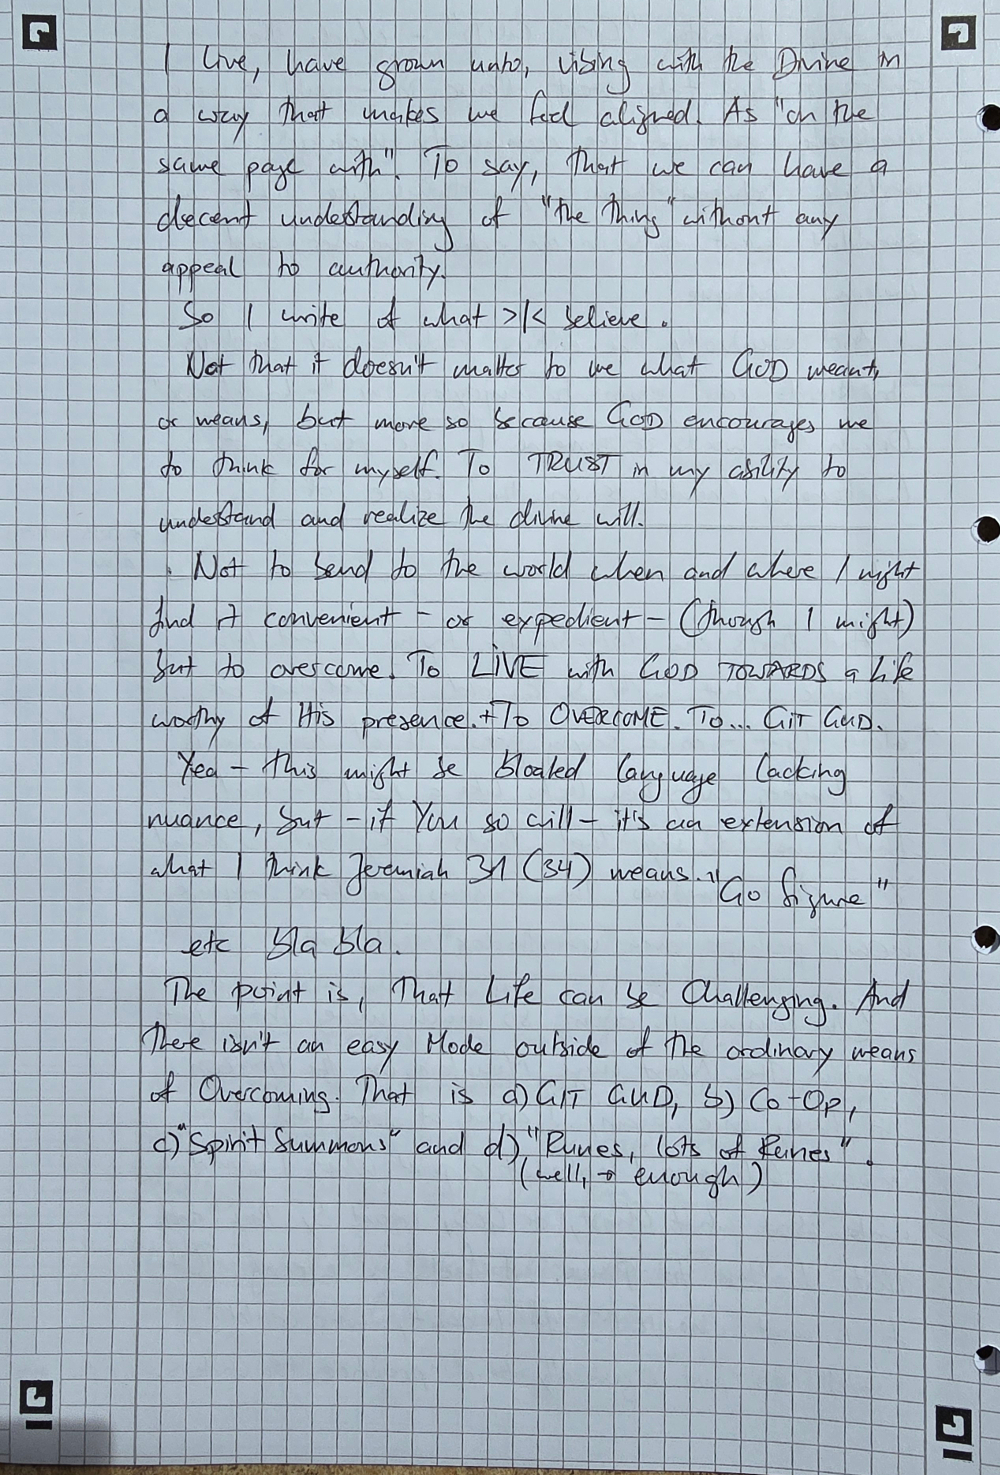 I live, have grown unto, vibing with the Divine in
a way that makes me feel aligned. As "on the
same page with". To say, that we can have a
decent understanding of "the thing" without any
appeal to authority.
So I write of what >I< believe.
Not that it doesn't matter to me what GOD meant,
or means, but more so because GOD encourages me
to think for myself. To TRUST in my ability to
understand and realize the divine will.
Not to bend to the world when and where I might
find it convenient - or expedient - (though I might)
but to overcome. To LIVE with GOD TOWARDS a Life
worthy of His presence. + To OVERCOME. To... GIT GUD.
Yea - this might be bloated language lacking
nuance, but - if You so will - it's an extension of
what I think Jeremiah 31 (34) means. "Go figure"
etc bla bla.
The point is, that Life can be Challenging. And
there isn't an easy Mode outside of the ordinary means
of Overcoming. That is a) GIT GUD, b) Co-Op,
c) "Spirit Summons" and d) "Runes, lots of Runes".
(well, enough)